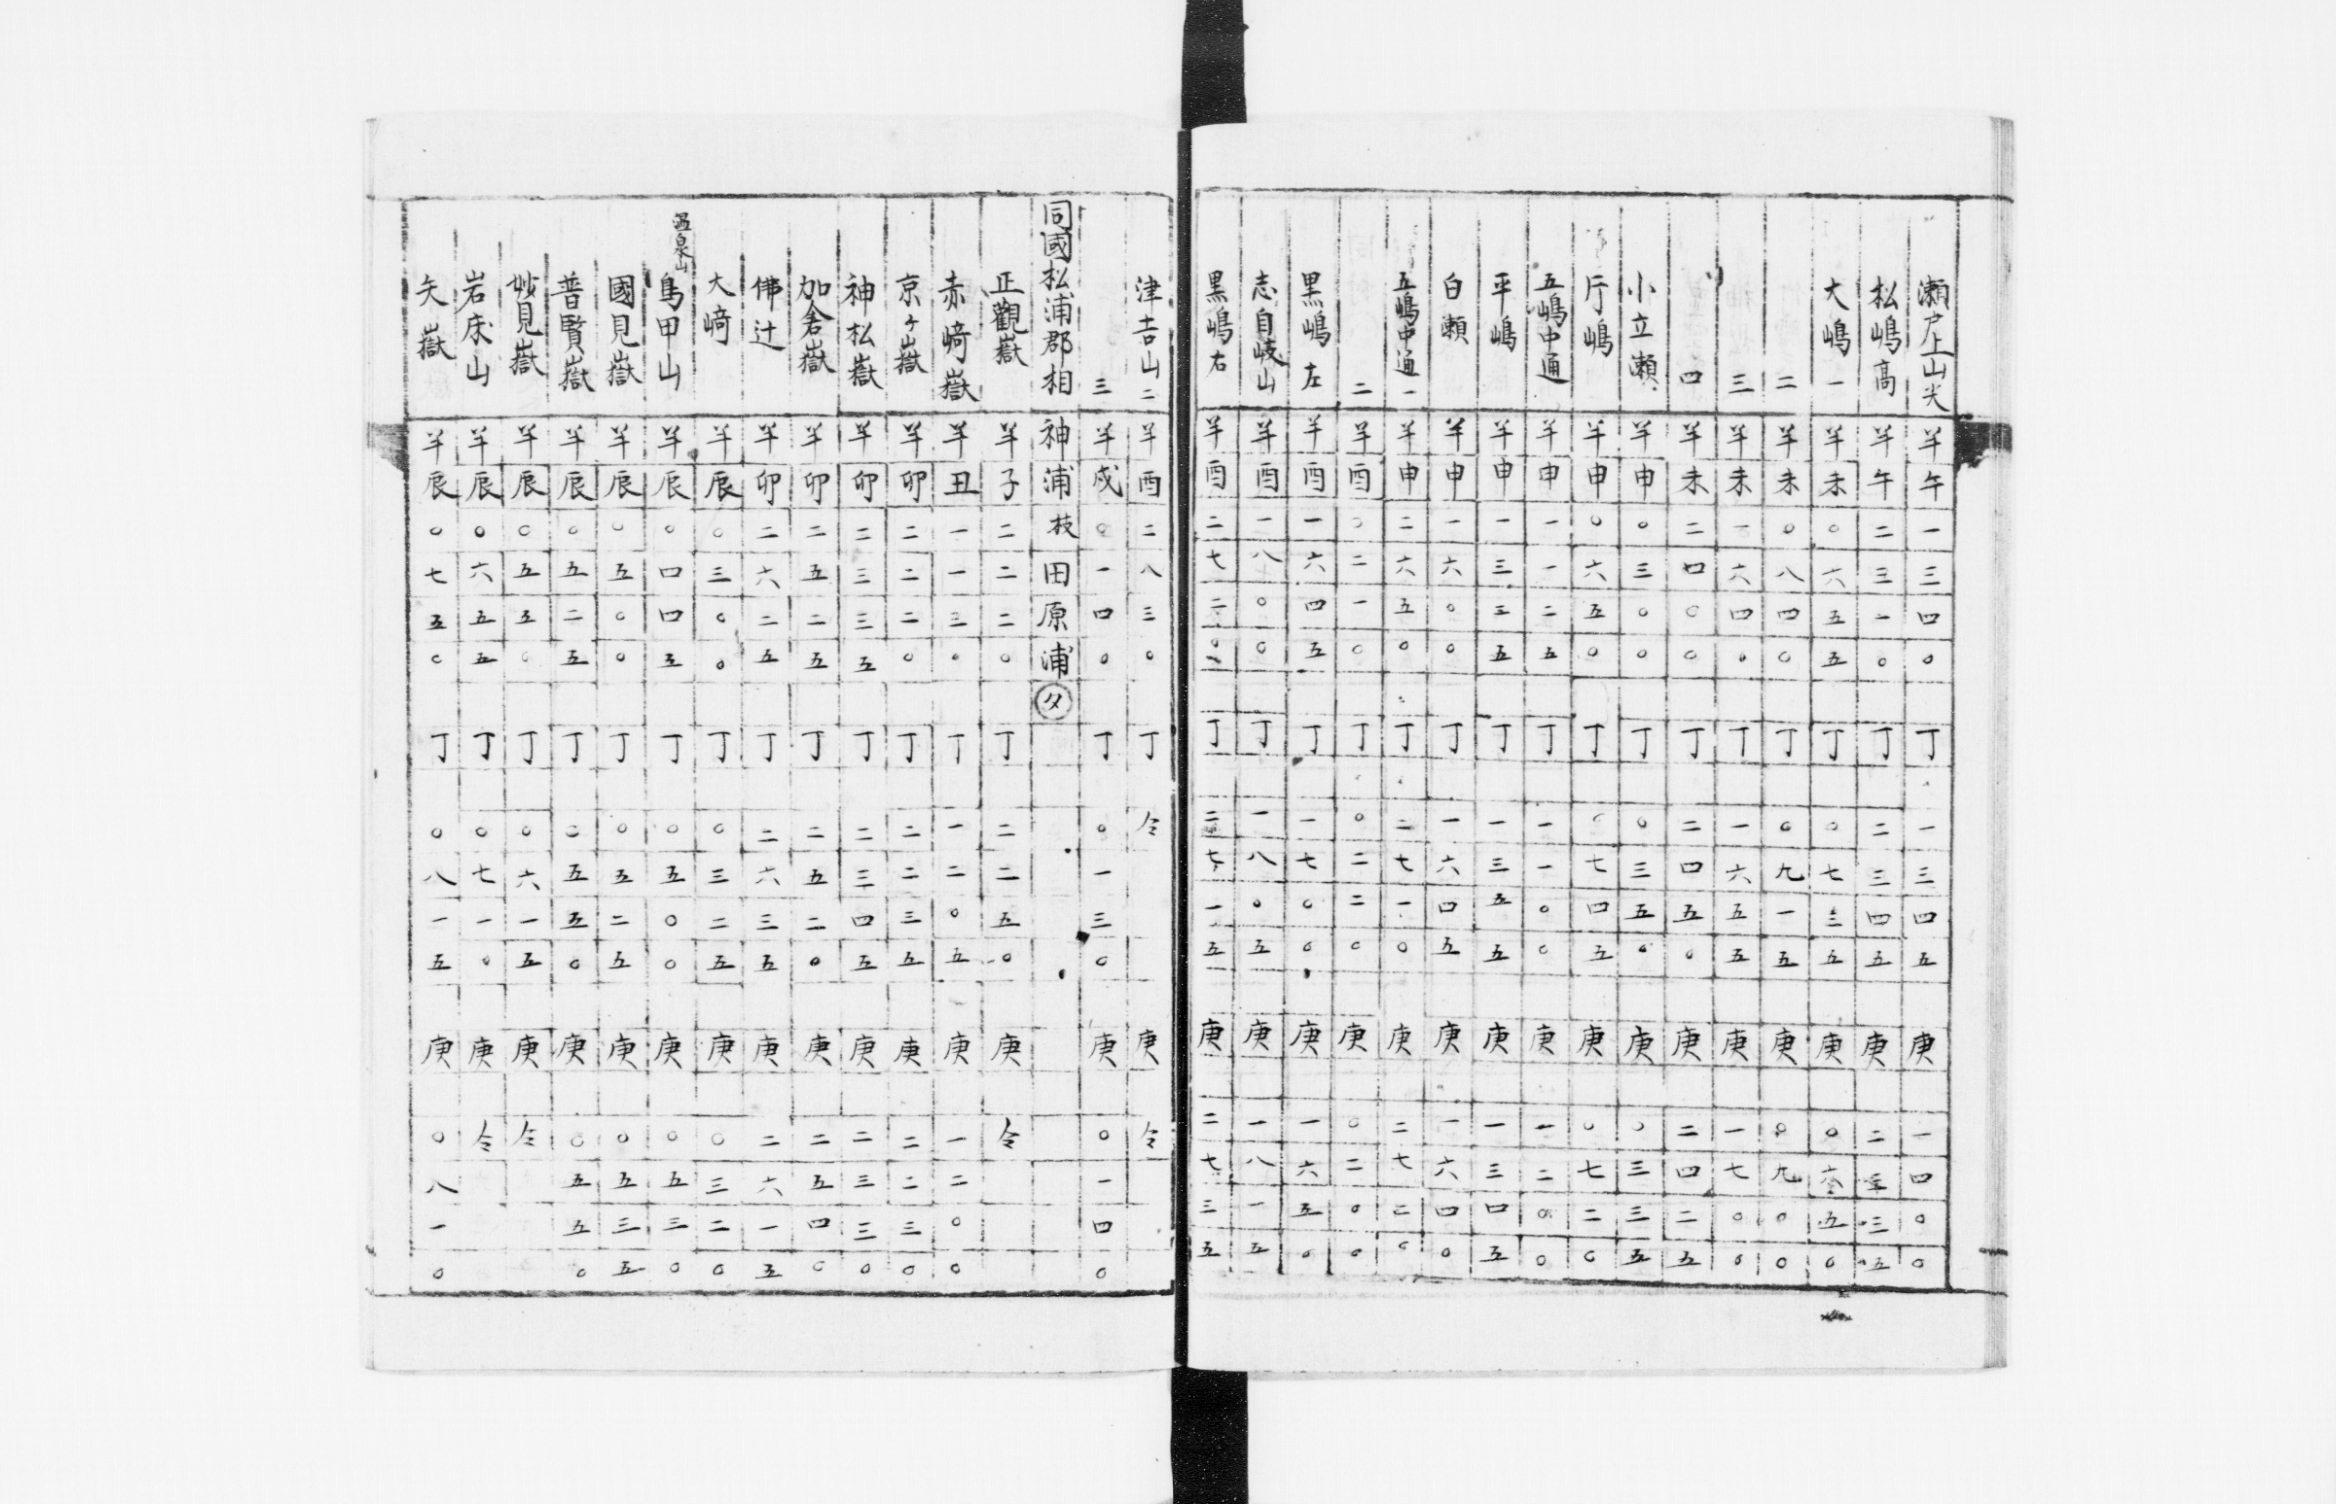 瀬戸上山尖 羊 午 一 三 四 〇 丁 一 三 四 五 庚 一 四 〇 〇
松嶋高 羊 午 二 三 一 〇 丁 二 三 四 五 庚 二 三 三 五
大嶋 一 羊 未 〇 六 五 五 丁 〇 七 三 五 庚 〇 六 五 〇
二 羊 未 〇 八 四 〇 丁 〇 九 一 五 庚 〇 九 〇 〇
三 羊 未 一 六 四 〇 丁 一 六 五 五 庚 一 七 〇 〇
四 羊 未 二 四 〇 〇 丁 二 四 五 〇 庚 二 四 二 五
小立瀬 羊 申 〇 三 〇 〇 丁 〇 三 五 〇 庚 〇 三 三 五
庁嶋 羊 申 〇 六 五 〇 丁 〇 七 四 五 庚 〇 七 二 〇
五嶋中通 羊 申 一 一 二 五 丁 一 一 〇 〇 庚 一 二 〇 〇
平嶋 羊 申 一 三 三 五 丁 一 三 五 五 庚 一 三 四 五
白瀬 羊 申 一 六 〇 〇 丁 一 六 四 五 庚 一 六 四 〇
五嶋中通 一 羊 申 二 六 五 〇 丁 二 七 一 〇 庚 二 七 二 〇
二 羊 酉 〇 二 一 〇 丁 〇 二 二 〇 庚 〇 二 〇 〇
黒嶋 左 羊 酉 一 六 四 五 丁 一 七 〇 〇 庚 一 六 五 〇
志自岐山 羊 酉 一 八 〇 〇 丁 一 八 〇 五 庚 一 八 一 五
黒嶋 右 羊 酉 二 七 二 〇 丁 二 七 一 五 庚 二 七 三 五
津吉山 二 羊 酉 二 八 三 〇 丁 仝 庚 仝
三 羊 戌 〇 一 四 〇 丁 〇 一 三 〇 庚 〇 一 四 〇
同國松浦郡相神浦枝田原浦 タ
正觀嶽 羊 子 二 二 二 〇 丁 二 二 五 〇 庚 仝
赤﨑嶽 羊 丑 一 一 三 〇 丁 一 二 〇 五 庚 一 二 〇 〇
京ヶ嶽 羊 卯 二 二 二 〇 丁 二 二 三 五 庚 二 二 三 〇
神松嶽 羊 卯 二 三 三 五 丁 二 三 四 五 庚 二 三 三 〇
加倉嶽 羊 卯 二 五 二 五 丁 二 五 二 〇 庚 二 五 四 〇
佛辻 羊 卯 二 六 二 五 丁 二 六 三 五 庚 二 六 一 五
大﨑 羊 辰 〇 三 〇 〇 丁 〇 三 二 五 庚 〇 三 二 〇
温泉山
鳥甲山 羊 辰 〇 四 四 五 丁 〇 五 〇 〇 庚 〇 五 三 〇
國見嶽 羊 辰 〇 五 〇 〇 丁 〇 五 二 五 庚 〇 五 三 五
普賢嶽 羊 辰 〇 五 二 五 丁 〇 五 五 〇 庚 〇 五 五 〇
妙見嶽 羊 辰 〇 五 五 〇 丁 〇 六 一 五 庚 仝
岩床山 羊 辰 〇 六 五 五 丁 〇 七 一 〇 庚 仝
矢嶽 羊 辰 〇 七 五 〇 丁 〇 八 一 五 庚 〇 八 一 〇